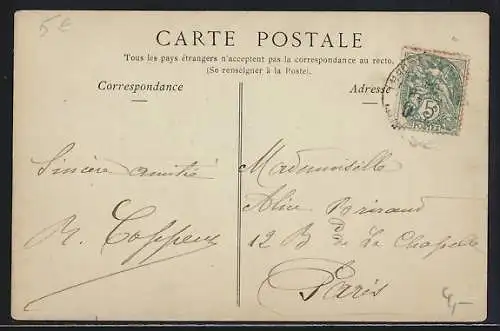 5€
CARTE POSTALE
Tous les pays étrangers n'acceptent pas la correspondance au recto.
(Se renseigner à la Poste).
Correspondance
Adresse
5
Sincère amitié
R. Coppens
Mademoiselle
Alice
12 Bd de La Chapelle
Paris
4,-